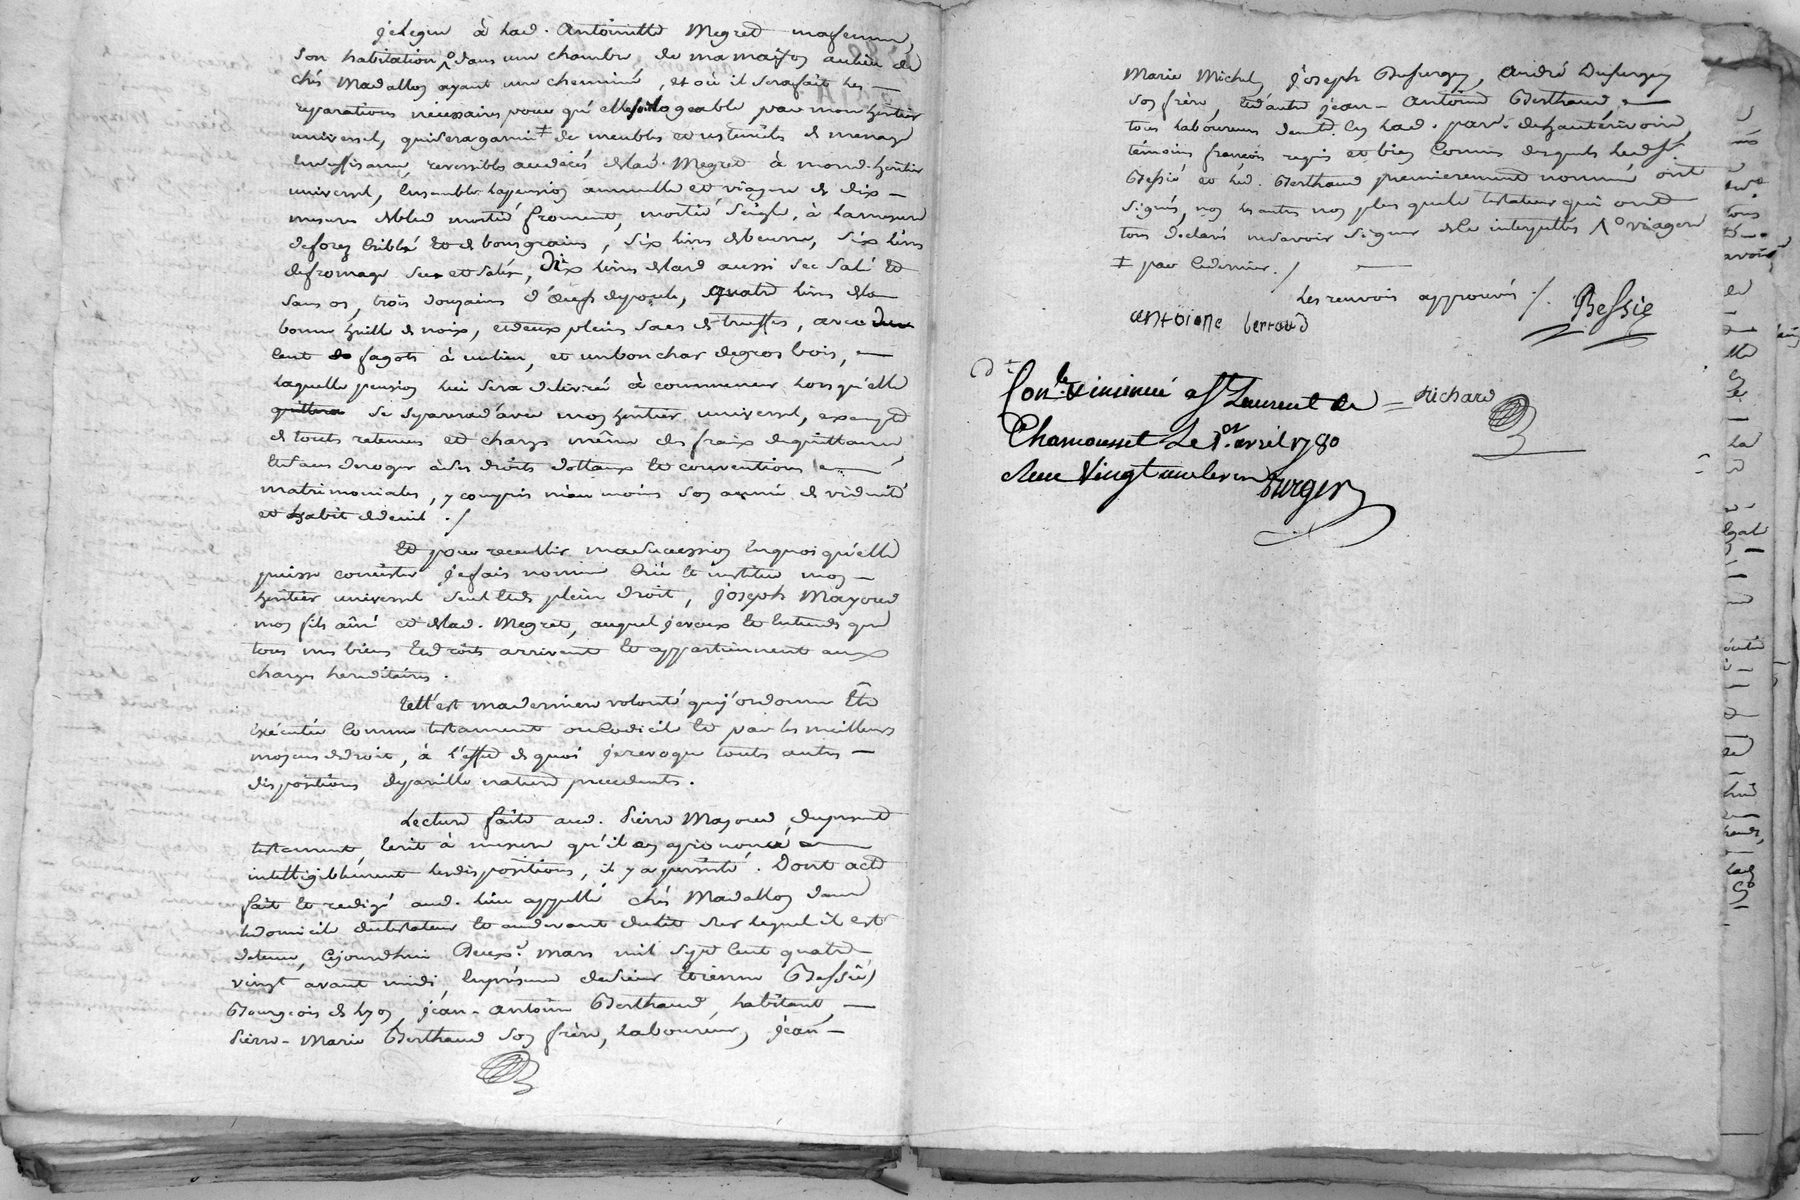 je legue à lad. Antoinette Megret ma femme,
son habitation ^° dans une chambre de ma maison au lieu de
chés Madallon ayant une cheminée, et où il sera fait les —
reparations nécessaires pour qu'elle soit logeable par mon héritier
universel, qui sera garnie ‡ de meubles et ustensils de menage
en suffisance, reversibles au décès de lad. Megret à mond. héritier
universel, ensemble la pension annuelle et viagere de dix —
mesures de bled moitié froment, moitié seigle, à la mesure
de forez criblé et de bons grains, six livres de beurre, six livres
de fromage sec et salé, dix livres de lard aussi sec salé et
sans os, trois douzaines d'œufs de poule, quatre livres de la
bonne huille de noix, et deux pleins sacs de truffes, avec un
cent de fagots à milieu, et un bon char de gros bois, —
laquelle pension lui sera delivrée à commencer lorsqu'elle
quittera se separera d'avec mon héritier universel, exempte
de toutes retenues et charges même des fraix de quittance,
et sans deroger à ses droits dottaux et conventions —
matrimoniales, y compris néan moins son année de viduité
et habit de deuil ./
Et pour recueillir ma succession en quoi qu'elle
puisse consister je fais nomme crée et institue mon —
héritier universel seul et de plein droit, Joseph Mayoud
mon fils aîné et de lad. Megret, auquel je veux et entends que
tous mes biens et droits arrivent et appartiennent aux
charges héréditaires.
telle est ma derniere volonté que j'ordonne être
exécutée comme testament ou codicile et par les meilleurs
moyens de droit, à l'effet de quoi je revoque toutes autres —
dispositions de pareille nature precedentes.
Lecture faite aud. Pierre Mayoud, du present
testament écrit à mesure qu'il en a prononcé —
intelligiblement les dispositions, il y a persisté. Dont acte
fait et redigé aud. lieu appellé chés Madallon dans
le domicile du testateur et au devant du lit sur lequel il est
detenu, cejourdhui deux.e mars mil sept cent quatre
vingt avant midi, en présence de sieur Etienne Bessié
Bourgeois de Lyon, jean-antoine Berthaud, habitant, —
Pierre-Marie Berthaud son frère, laboureur, jean —
Marie Michel, joseph Dufurgey, andré Dufurgey
son frère, et d'autre jean-Antoine Berthaud, —
tous laboureurs demt. en lad. par. de hauterivoire,
témoins françois requis et bien connus desquels led. Sr.
Bessié et led. Berthaud premierement nommé ont
signé, non les autres non plus que le testateur qui ont
tous declaré ne savoir signer de ce interpellés ^° viagere
‡ par ce dernier ./ —
les renvois approuvés ./. Bessie
antoine bertaud
Con.lé & insinué a St Laurent de = Richard
Chamousset Le 1.er avril 1780
Reçu Vingt
Burger